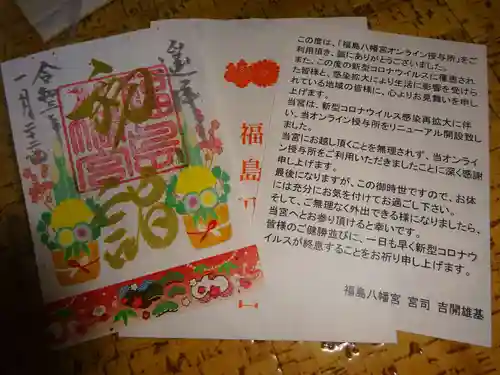 奉拝
令和三年
一月二十二日
初詣
福島八
この度は、「福島八幡宮オンライン授与所」をご
利用頂き、誠にありがとうございました。
また、この度の新型コロナウイルスに罹患され
た皆様と、感染拡大により生活に影響を受けら
れている地域の皆様に、心よりお見舞いを申し
上げます。
当宮は、新型コロナウイルス感染再拡大に伴
い、当オンライン授与所をリニューアル開設致し
ました。
当宮にお越し頂くことを無理されず、当オンライ
ン授与所をご利用いただきましたことに深く感謝
申し上げます。
最後になりますが、この御時世ですので、お体
には充分にお気を付けてお過ごし下さい。
そして、ご無理なく外出できる様になりましたら、
当宮へとお参り頂けると幸いです。
皆様のご健勝並びに、一日も早く新型コロナウ
イルスが終息することをお祈り申し上げます。
福島八幡宮 宮司 吉開雄基